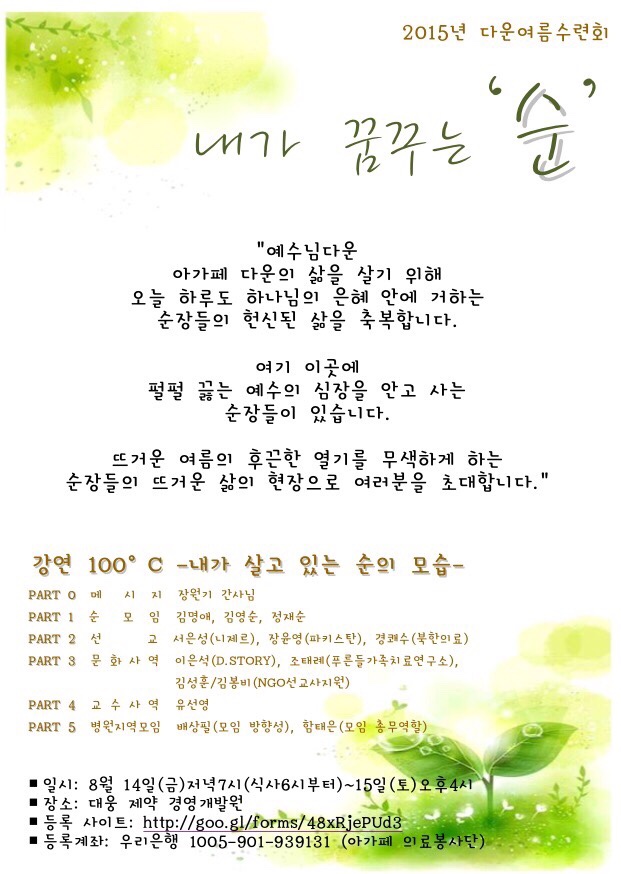 2015년 다운여름수련회
내가 꿈꾸는 '순'
"예수님다운
아가페 다운의 삶을 살기 위해
오늘 하루도 하나님의 은혜 안에 거하는
순장들의 헌신된 삶을 축복합니다.
여기 이곳에
펄펄 끓는 예수의 심장을 안고 사는
순장들이 있습니다.
뜨거운 여름의 후끈한 열기를 무색하게 하는
순장들의 뜨거운 삶의 현장으로 여러분을 초대합니다."
강연 100°C -내가 살고 있는 순의 모습-
PART 0 메 시 지 장원기 간사님
PART 1 순 모 임 김명애, 김영순, 정재순
PART 2 선 교 서은성(니제르), 장윤영(파키스탄), 경쾌수(북한의료)
PART 3 문 화 사 역 이은석(D.STORY), 조태례(푸른들가족치료연구소),
김성훈/김봉비(NGO선교사지원)
PART 4 교 수 사 역 유선영
PART 5 병원지역모임 배상필(모임 방향성), 함태은(모임 총무역할)
■ 일시: 8월 14일(금)저녁7시(식사6시부터)~15일(토)오후4시
■ 장소: 대웅 제약 경영개발원
■ 등록 사이트: http://goo.gl/forms/48xRjePUd3
■ 등록계좌: 우리은행 1005-901-939131 (아가페 의료봉사단)